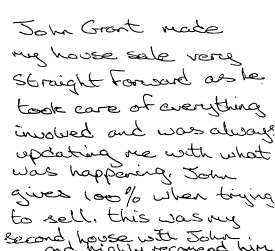 John Grant made
my house sale very
straight forward as he
took care of everything
involved and was always
updating me with what
was happening. John
gives 100% when trying
to sell. this was my
second house with John,
and highly recommend him